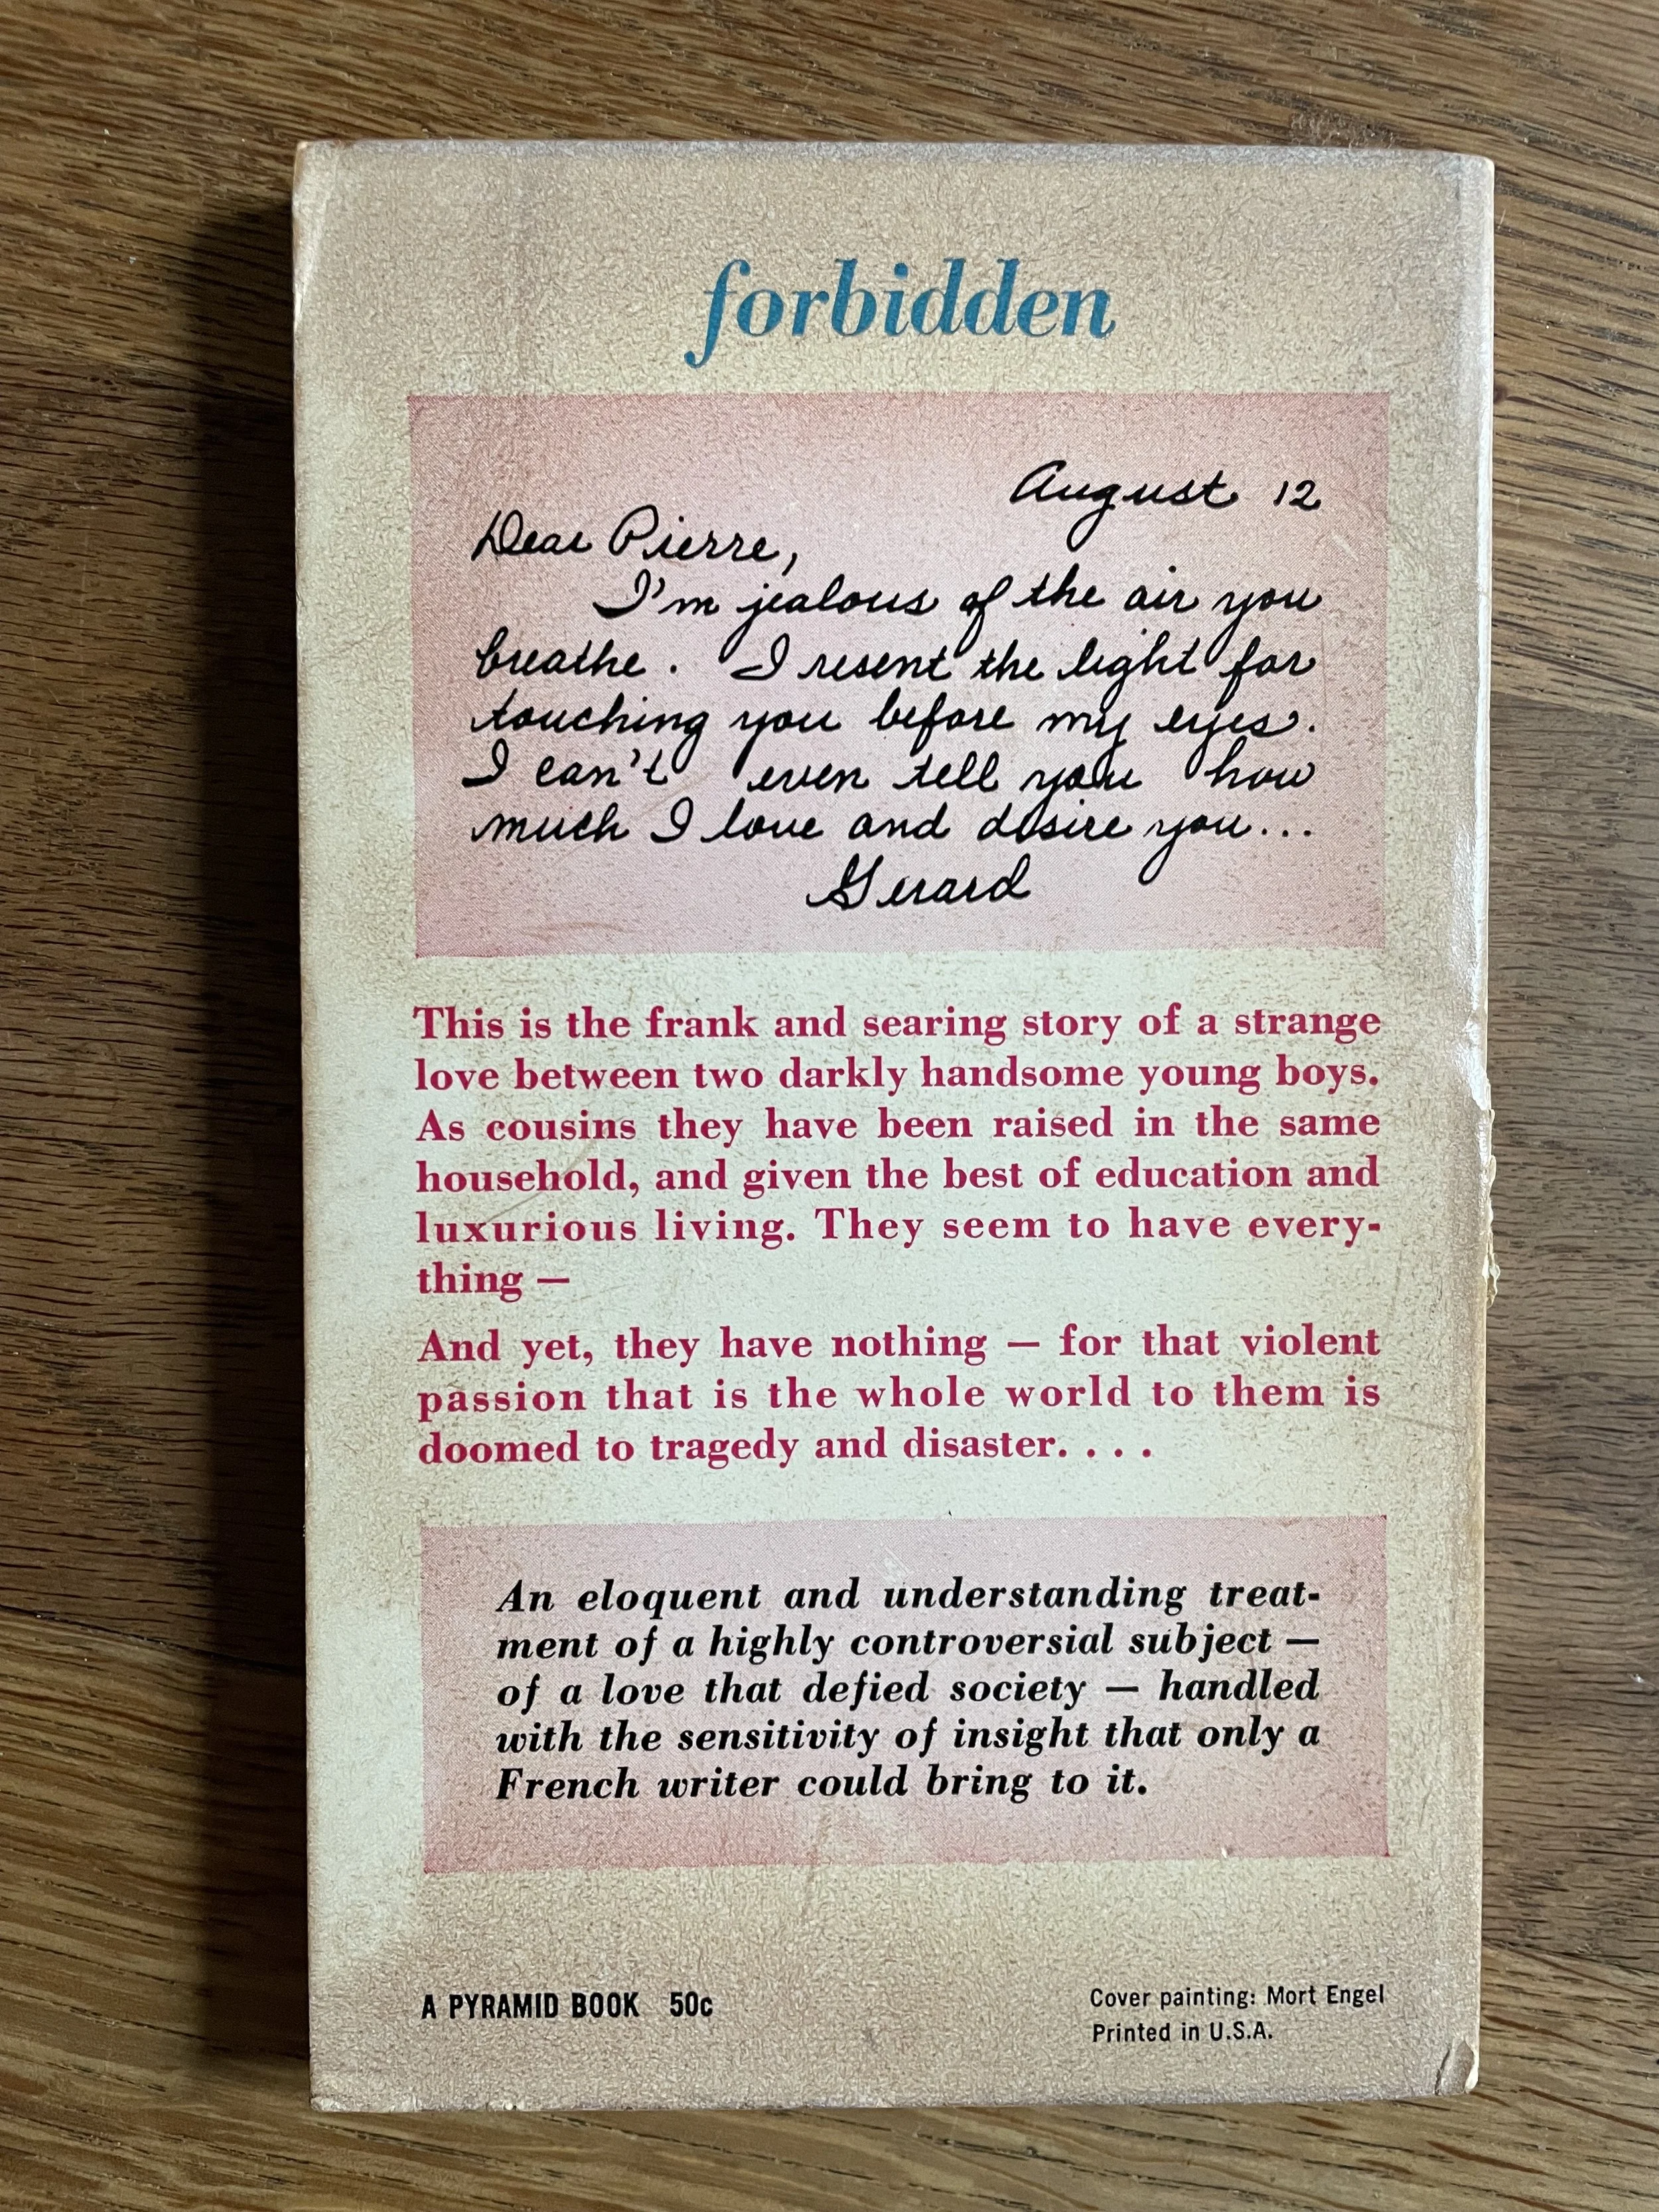 forbidden
August 12
Dear Pierre,
I'm jealous of the air you
breathe. I resent the light for
touching you before my eyes.
I can't even tell you how
much I love and desire you...
Gerard
This is the frank and searing story of a strange
love between two darkly handsome young boys.
As cousins they have been raised in the same
household, and given the best of education and
luxurious living. They seem to have every-
thing —
And yet, they have nothing — for that violent
passion that is the whole world to them is
doomed to tragedy and disaster. . . .
An eloquent and understanding treat-
ment of a highly controversial subject —
of a love that defied society — handled
with the sensitivity of insight that only a
French writer could bring to it.
A PYRAMID BOOK 50c
Cover painting: Mort Engel
Printed in U.S.A.